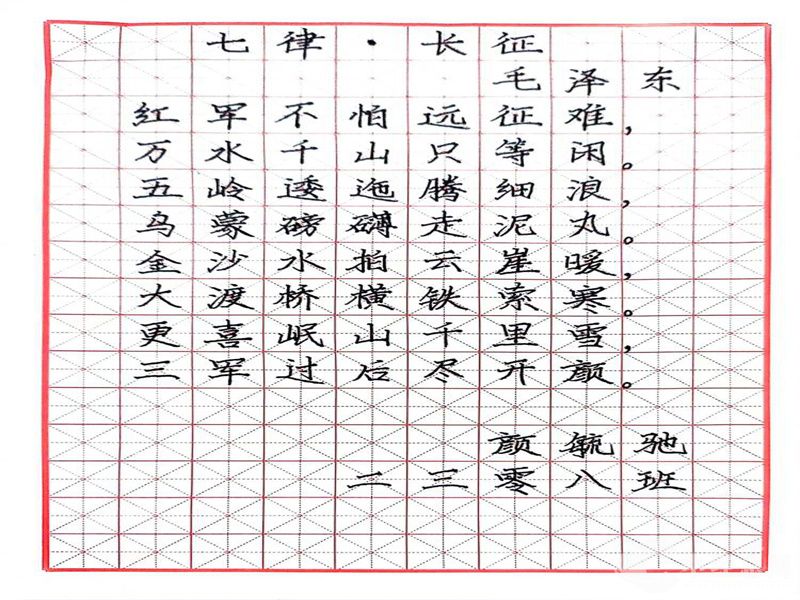 七律·长征
毛泽东
红军不怕远征难，
万水千山只等闲。
五岭逶迤腾细浪，
乌蒙磅礴走泥丸。
金沙水拍云崖暖，
大渡桥横铁索寒。
更喜岷山千里雪，
三军过后尽开颜。
颜航驰
二三零八班